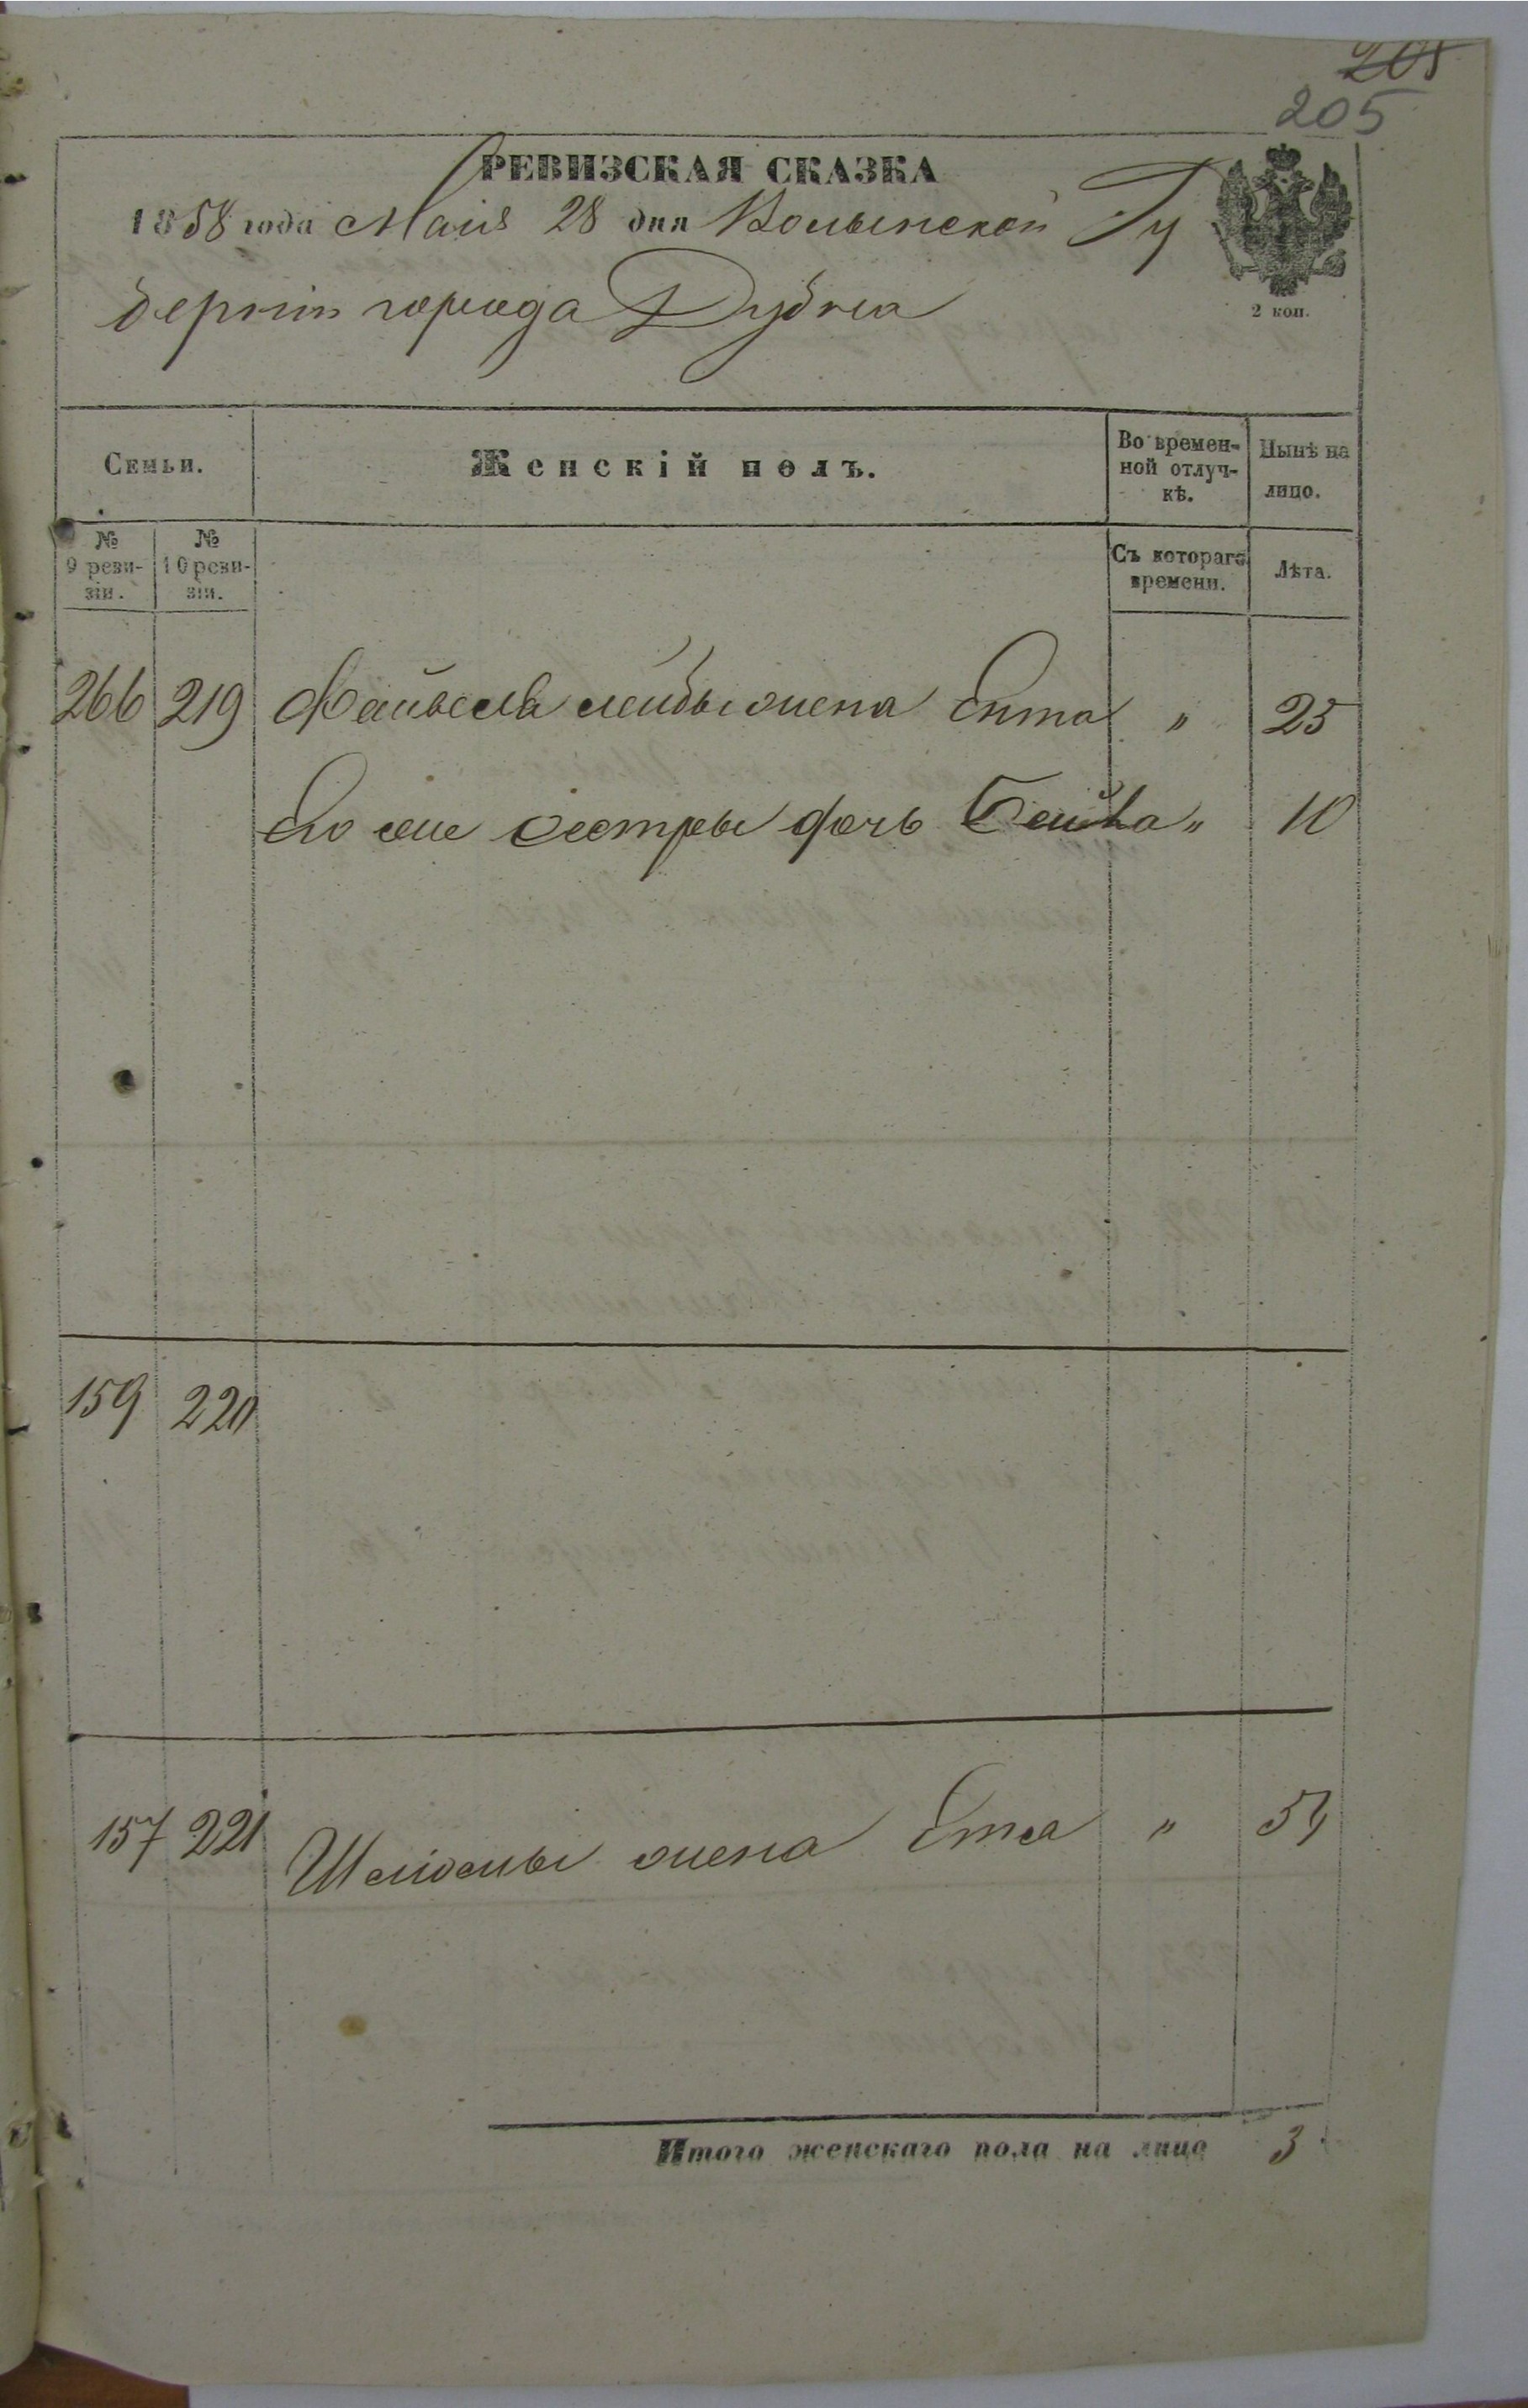 205
205
РЕВИЗСКАЯ СКАЗКА
1858 года Маія 28 дня Волынской Гу
берніи города Дубна
2 коп.
Семьи.
Женскій полъ.
Во времен-
ной отлуч-
кѣ.
Нынѣ на
лицо.
№
9 реви-
зіи.
№
10 реви-
зіи.
Съ котораго
времени.
Лѣта.
266 219 Файвеля Лейбы жена Ента " 25
Его же сестры дочь Бейла " 10
159 220
157 221 Шеліомы жена Етта " 59
Итого женскаго пола на лицо 3